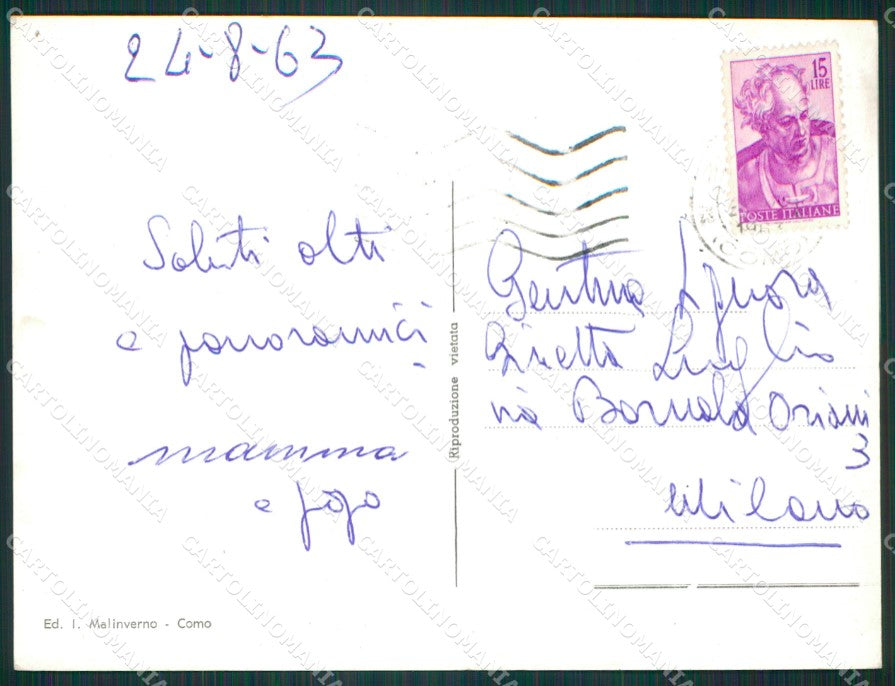 24-8-63
15
LIRE
POSTE ITALIANE
Saluti alti
e panoramici
mamma
e
Gentma Signora
Ginetta Luglio
via Barnaba Oriani
3
Milano
Riproduzione vietata
Ed. I. Malinverno - Como
CARTOLINOMANIA